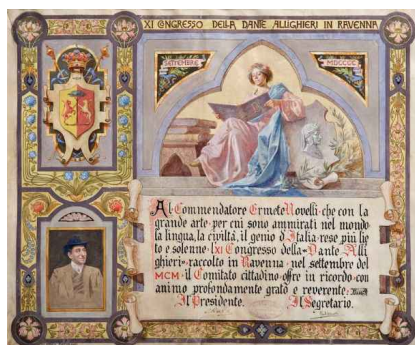 XI CONGRESSO DELLA DANTE ALLIGHIERI IN RAVENNA
SETTEMBRE
MDCCCC
Al Commendatore Ermete Novelli che con la
grande arte per cui sono ammirati nel mondo
la lingua, la civiltà, il genio d'Italia rese più lie
to e solenne l'XI Congresso della Dante Alli
ghieri raccolto in Ravenna nel settembre del
MCM il Comitato cittadino offre in ricordo con
animo profondamente grato e reverente.
Il Presidente. Il Segretario.